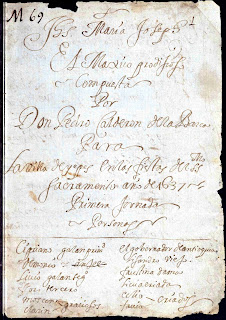 M 69
Jhs Maria Joseph
El Maxico prodijioso
Compuesta
Por
Don Pedro Calderon de la Barca
Para
la villa de yepes en las fiestas del SS
Sacramento año de 1637
Primera Jornada
Personas
Cipriano galan
Demonio
Floro
moscon graciosos
clarin
el gobernador de antioquia
Lisandro viejo
Justina dama
Livia criada
criados